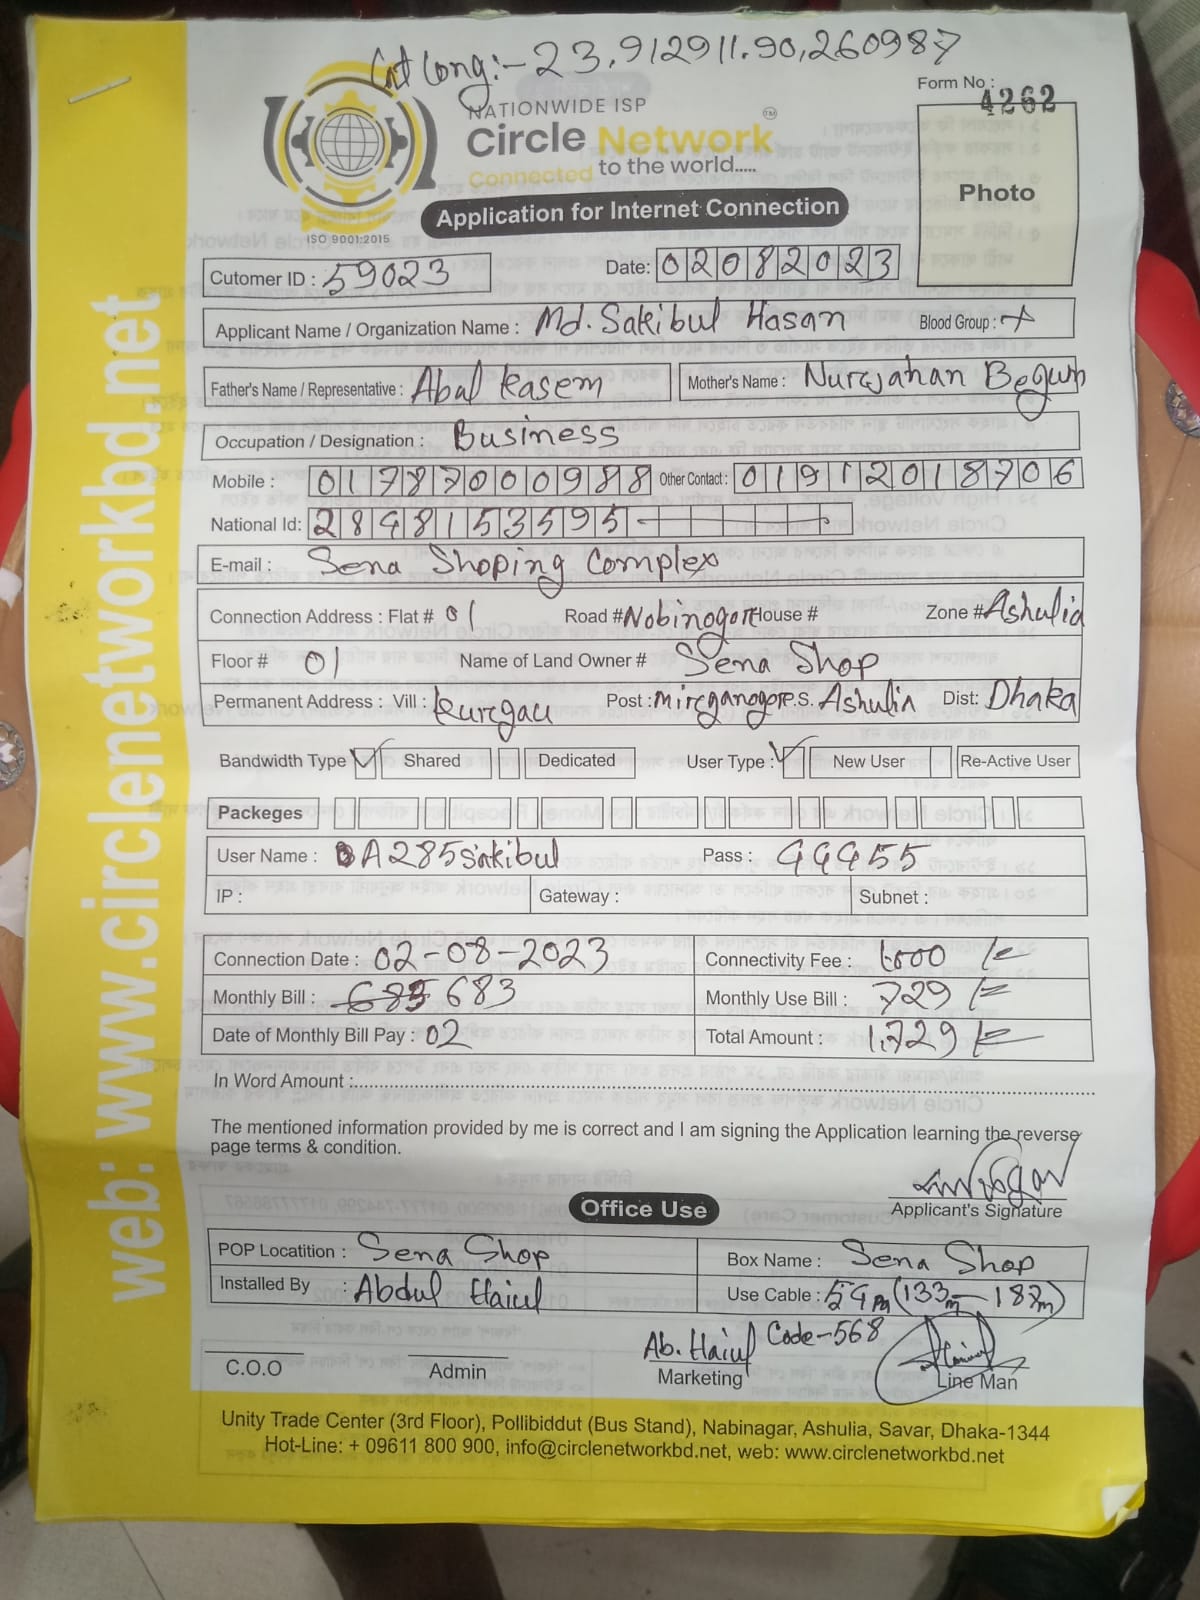 Lat Long:- 23.912911.90,260987
Form No.: 4262
NATIONWIDE ISP
Circle Network TM
Connected to the world.....
ISO 9001:2015
Application for Internet Connection
Photo
Cutomer ID : 59023 Date: 02082023
Applicant Name / Organization Name : Md. Sakibul Hasan Blood Group :
Father's Name / Representative : Abul Kasem Mother's Name : Nurjahan Begum
Occupation / Designation : Business
Mobile : 01787000988 Other Contact : 019112018706
National Id: 2848153595-
E-mail : Sena Shoping Complex
Connection Address : Flat # 01 Road # Nobinogor House # Zone # Ashulia
Floor # 01 Name of Land Owner # Sena Shop
Permanent Address : Vill : Kurgau Post : Mirganogor P.S. Ashulia Dist: Dhaka
Bandwidth Type ✓ Shared Dedicated User Type : ✓ New User Re-Active User
Packeges
User Name : A285sakibul Pass : 44455
IP : Gateway : Subnet :
Connection Date : 02-08-2023 Connectivity Fee : 1000
Monthly Bill : 685 683 Monthly Use Bill : 729
Date of Monthly Bill Pay : 02 Total Amount : 1,729
In Word Amount :
The mentioned information provided by me is correct and I am signing the Application learning the reverse
page terms & condition.
Applicant's Signature
Office Use
POP Locatition : Sena Shop Box Name : Sena Shop
Installed By : Abdul Haiul Use Cable : 54m (133m - 187m)
Ab. Haiul Code-568
C.O.O Admin Marketing Line Man
Unity Trade Center (3rd Floor), Pollibiddut (Bus Stand), Nabinagar, Ashulia, Savar, Dhaka-1344
Hot-Line: + 09611 800 900, info@circlenetworkbd.net, web: www.circlenetworkbd.net
web: www.circlenetworkbd.net